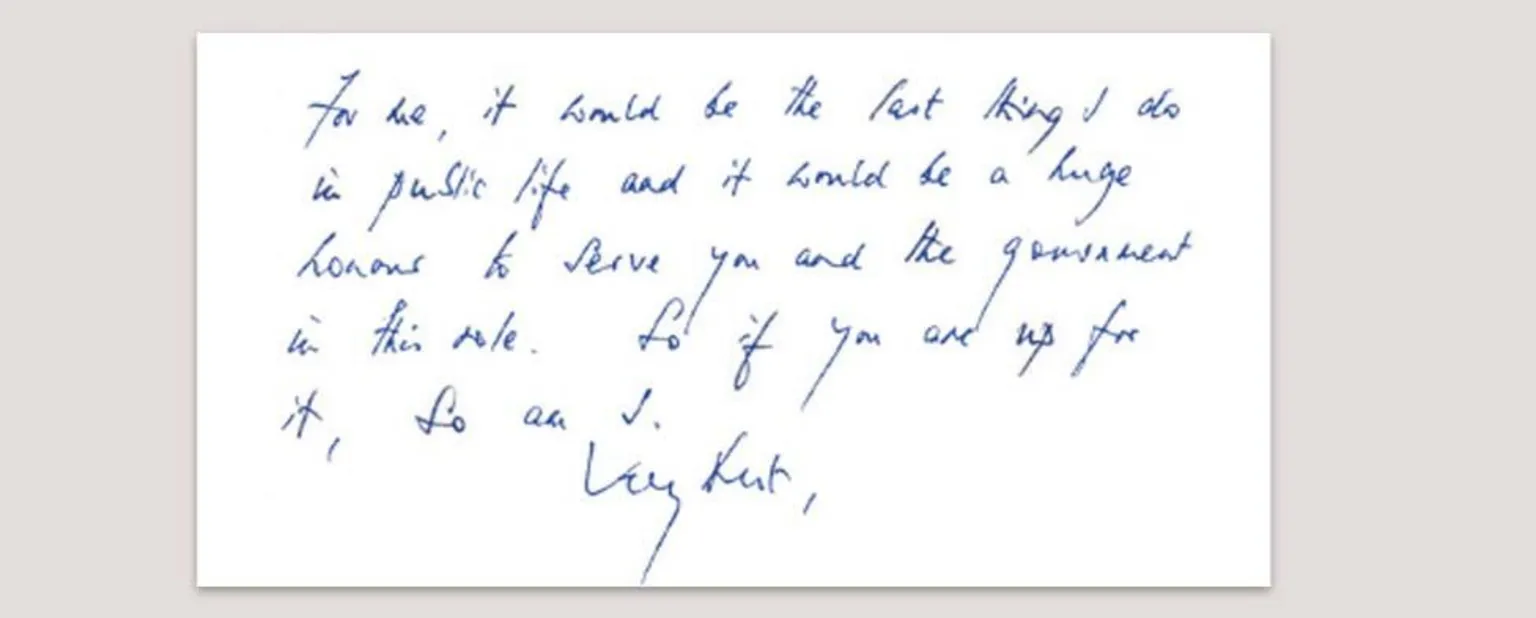 For me, it would be the last thing I do
in public life and it would be a huge
honour to serve you and the government
in this role. So if you are up for
it, so am I.
Very best,